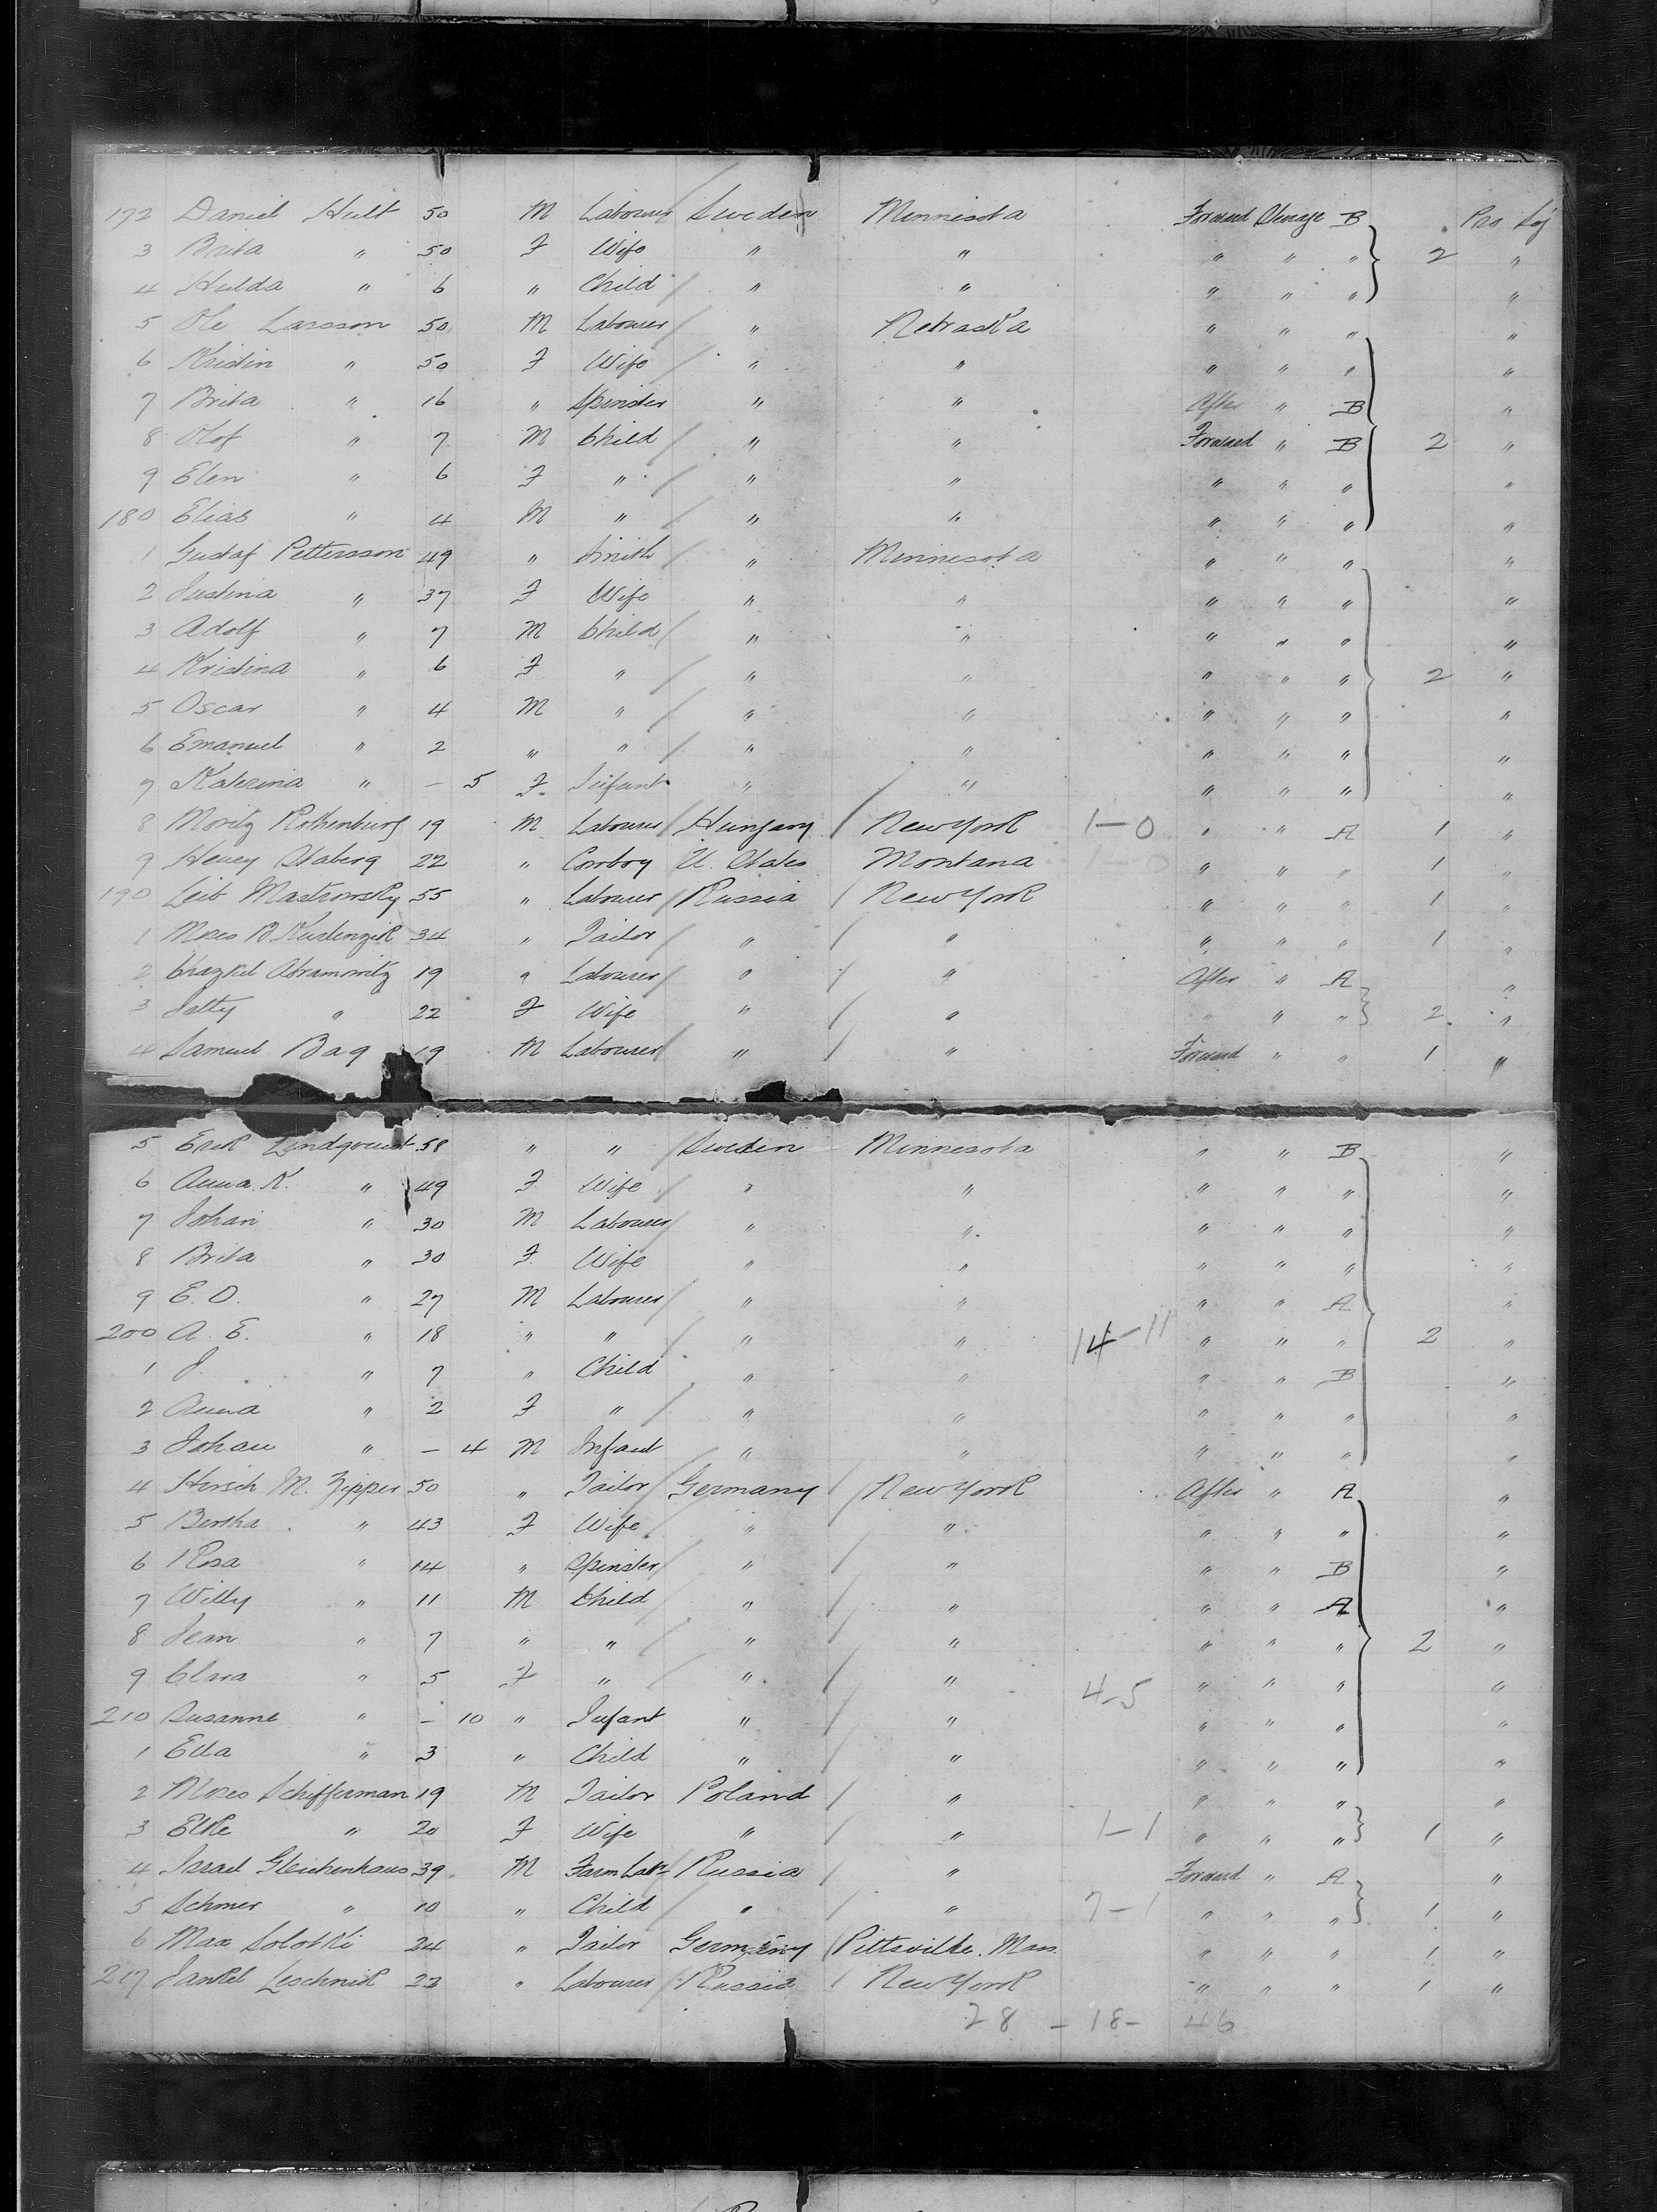 172 Daniel Hult 50 M Labourer Sweden Minnisota Forward Steerage B Pro Soj
3 Brita " 50 F Wife " " " " " 2 "
4 Hulda " 6 " Child " " " " " "
5 Ole Larsson 50 M Labourer " Nebraska " " " "
6 Kristin " 50 F Wife " " " " " "
7 Brita " 16 " Spinster " " After " B "
8 Olof " 7 M Child " " Forward " B 2 "
9 Elen " 6 F " " " " " " "
180 Elias " 4 M " " " " " " "
1 Gustaf Pettersson 49 " Smith " Minnesota " " " "
2 Justina " 37 F Wife " " " " " "
3 Adolf " 7 M Child " " " " " "
4 Kristina " 6 F " " " " " " 2 "
5 Oscar " 4 M " " " " " " "
6 Emanuel " 2 " " " " " " " "
7 Katerina " - 5 F Infant " " " " " "
8 Moritz Rothenburg 19 M Labourer Hungary New York 1-0 " " A 1 "
9 Henry Staberg 22 " Cowboy U. States Montana 1-0 " " " 1 "
190 Leib Mastrowsky 55 " Labourer Russia New York " " " 1 "
1 Moses B. 34 " Tailor " " " " " 1 "
2 Abramowitz 19 " Labourer " " After " A "
3 Jetty " 22 F Wife " " " " " 2 "
4 Samuel Bag 19 M Labourer " " Forward " " 1 "
5 Erik Lindqvist 58 " " Sweden Minnesota " " B "
6 Anna K. " 49 F Wife " " " " " "
7 Johan " 30 M Labourer " " " " " "
8 Brita " 30 F Wife " " " " " "
9 E. O. " 27 M Labourer " " " " A "
200 A. E. " 18 " " " " 14-11 " " " 2 "
1 J. " 7 " Child " " " " B "
2 Anna " 2 F " " " " " " "
3 Johan " - 4 M Infant " " " " " "
4 Hirsch M. Zipper 50 " Tailor Germany New York After " A "
5 Bertha " 43 F Wife " " " " " "
6 Rosa " 14 " Spinster " " " " B "
7 Willy " 11 M Child " " " " A "
8 Jean " 7 " " " " " " " 2 "
9 Clara " 5 F " " " 4-5 " " " "
210 Susanne " - 10 " Infant " " " " " "
1 Ella " 3 " Child " " " " " "
2 Moses Schifferman 19 M Tailor Poland " " " " "
3 Elke " 20 F Wife " " 1-1 " " " 1 "
4 Israel Gleichenhaus 39 M Farm Labr Russia " Forward " A "
5 Schmer " 10 " Child " " 7-1 " " " 1 "
6 Max Solotki 24 " Tailor Germany Pittsville. Mass. " " " 1 "
217 Jankel Leschnik 23 " Labourer Russia New York " " " 1 "
28 - 18 - 46